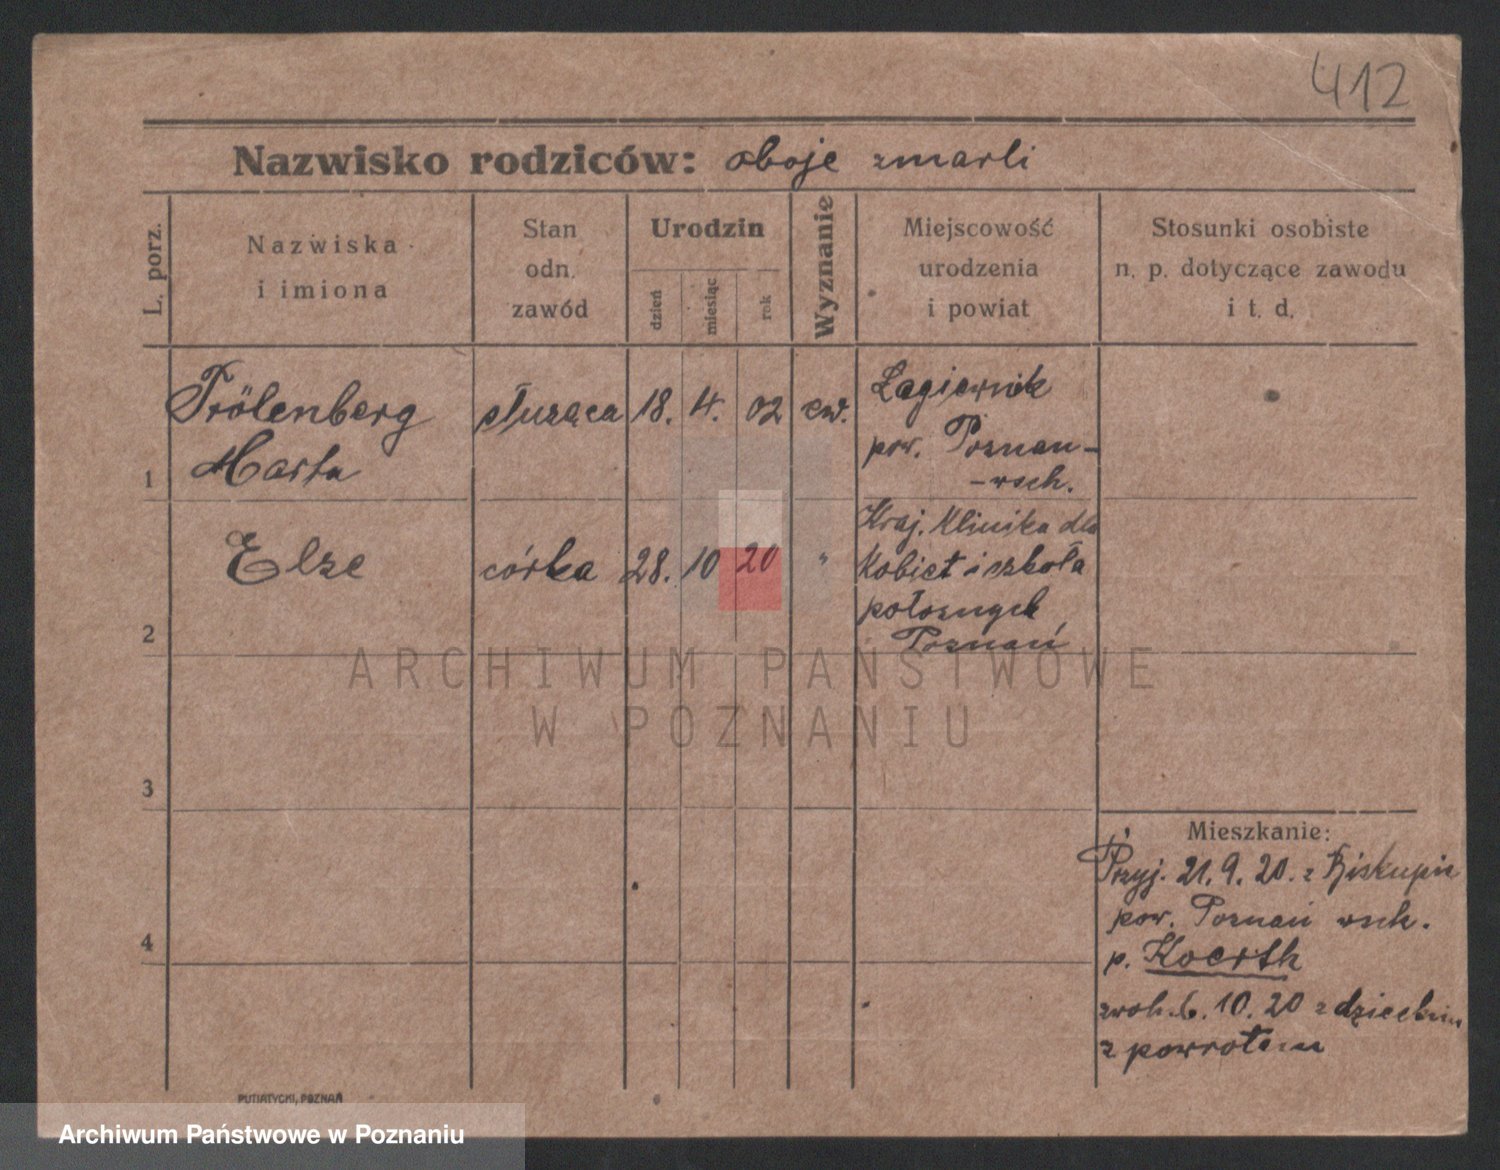 412
Nazwisko rodziców: oboje zmarli
L. porz.
Nazwiska
i imiona
Stan
odn.
zawód
Urodzin
dzień
miesiąc
rok
Wyznanie
Miejscowość
urodzenia
i powiat
Stosunki osobiste
n. p. dotyczące zawodu
i t. d.
1
Frölenberg
Marta
służąca
18. 4. 02
ew.
Łagiewnik
pow. Poznań-
-wsch.
2
Elze
córka
28. 10 20
"
Kraj. Klinika dla
Kobiet i szkoła
położnych
Poznań
3
4
Mieszkanie:
Przyj. 21. 9. 20. z Biskupic
pow. Poznań wsch.
p. Koerth
6. 10. 20 z dzieckiem
z powrotem
PUTIATYCKI, POZNAŃ
ARCHIWUM PAŃSTWOWE
W POZNANIU
Archiwum Państwowe w Poznaniu